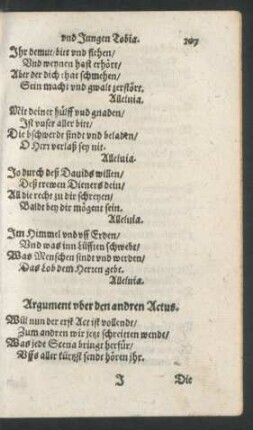 vnd Jungen Tobia. 707
Ihr demut/bitt vnd flehen/
Vnd weynen hast erhört/
Aber der dich that schmehen/
Sein macht vnd gwalt zerstört.
Alleluia.
Mit deiner hülff vnd gnaden/
Ist vnser aller bitt/
Die bschwerde sindt vnd beladen/
O Herr verlaß sey nit.
Alleluia.
Jo durch deß Dauids willen/
Deß trewen Dieners dein/
All die recht zu dir schreyen/
Baldt bey dir mögent sein.
Alleluia.
Im Himmel vnd vff Erden/
Vnd was inn Lüfften schwebt/
Was Menschen sindt vnd werden/
Das Lob dem Herren gebt.
Alleluia.
Argument vber den andren Actus.
Will nun der erst Act ist vollendt/
Zum andren wir jetz schreitten wendt/
Was jede Scena bringt herfür/
Vffs aller kürtzst sendt hören jhr.
J Die